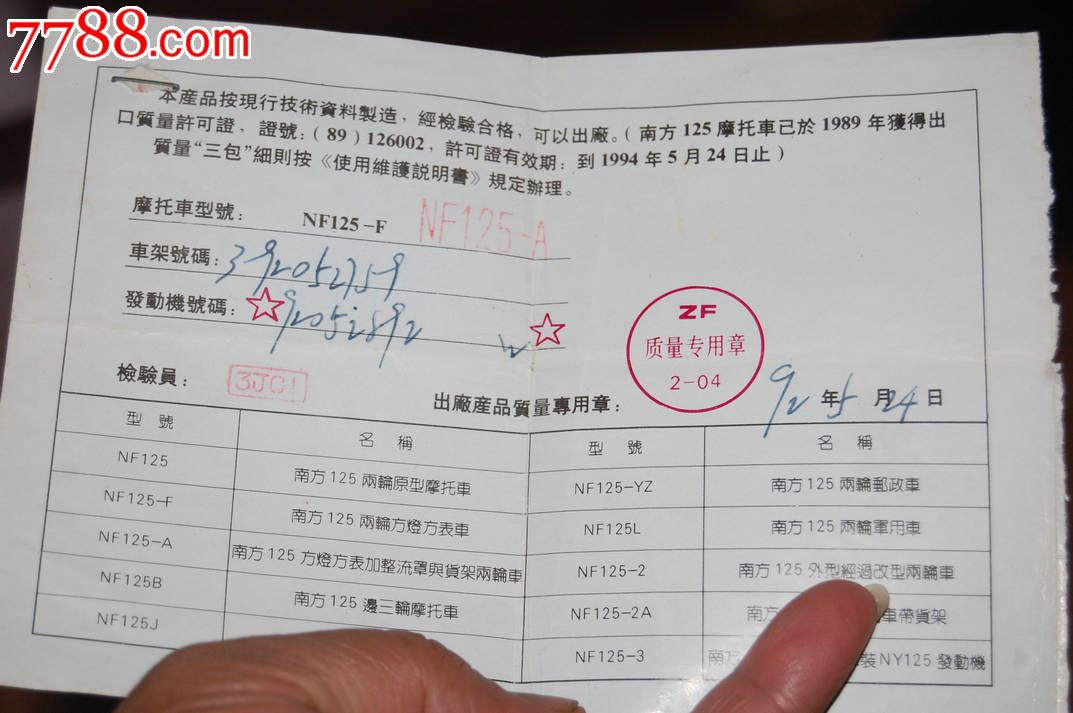 7788.com
本產品按現行技術資料製造，經檢驗合格，可以出廠。（南方 125 摩托車已於 1989 年獲得出
口質量許可證，證號：（89）126002，許可證有效期：到 1994 年 5 月 24 日止）
質量“三包”細則按《使用維護説明書》規定辦理。
摩托車型號： NF125-F NF125-A
車架號碼：392052759
發動機號碼：☆92052892 W ☆
ZF
质量专用章
2-04
檢驗員： 3JC1
出廠産品質量專用章： 92 年 5 月 24 日
型 號 名 稱 型 號 名 稱
NF125 南方 125 兩輪原型摩托車 NF125-YZ 南方 125 兩輪郵政車
NF125-F 南方 125 兩輪方燈方表車 NF125L 南方 125 兩輪軍用車
NF125-A 南方 125 方燈方表加整流罩與貨架兩輪車 NF125-2 南方 125 外型經過改型兩輪車
NF125B 南方 125 邊三輪摩托車 NF125-2A 南方 車帶貨架
NF125J NF125-3 南方 裝NY125 發動機